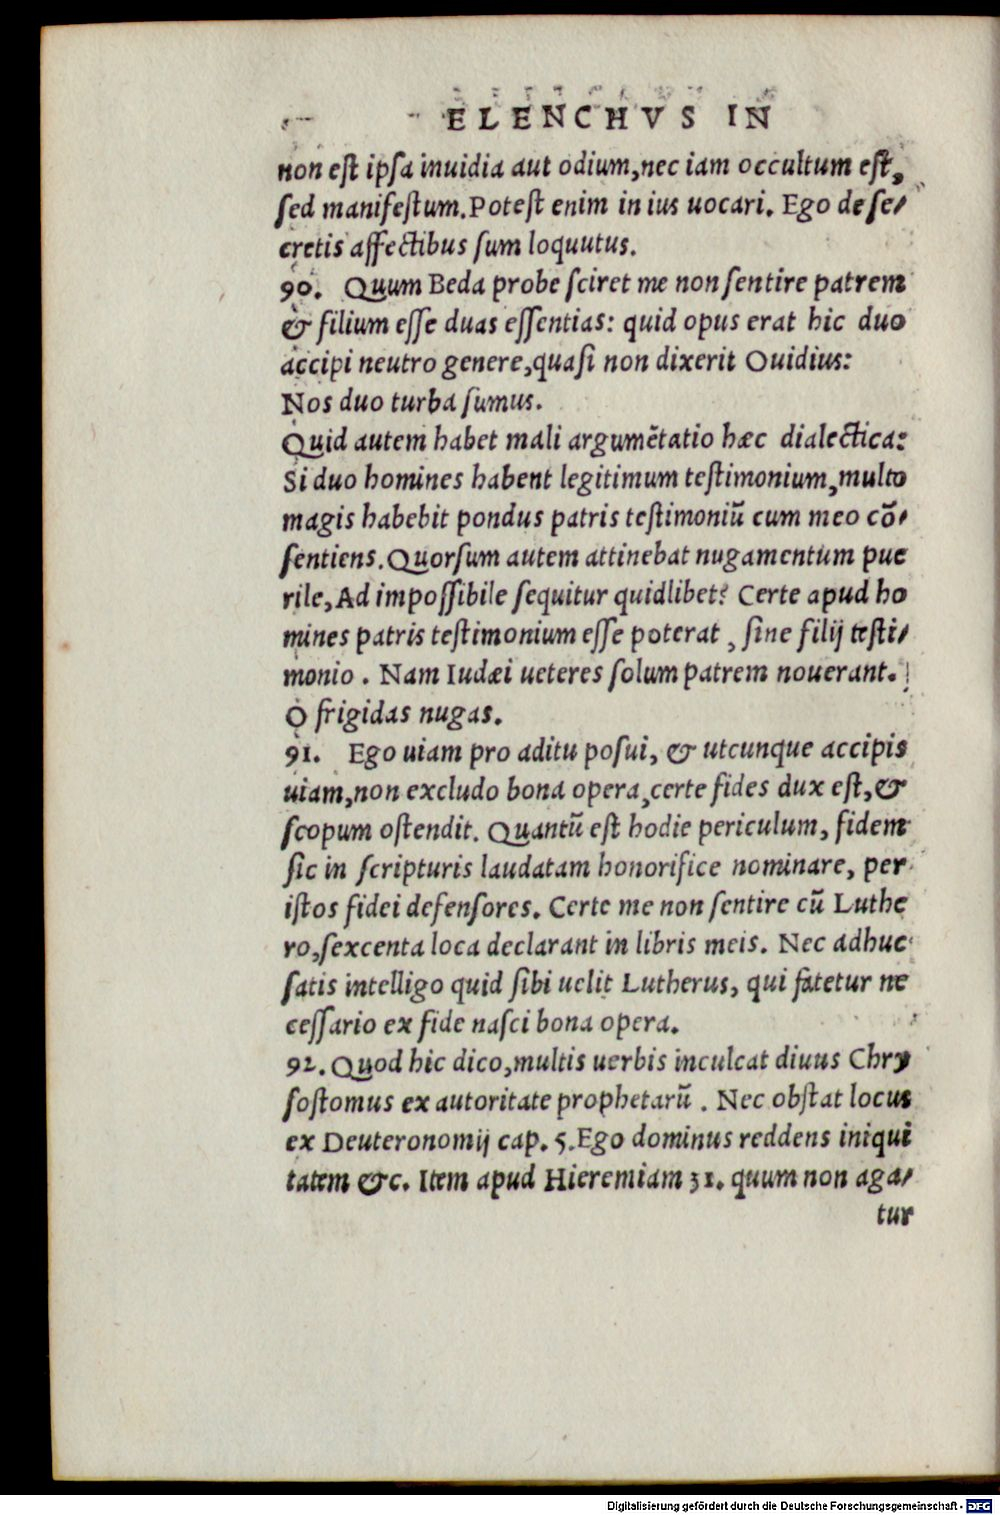 ELENCHVS IN
non est ipsa inuidia aut odium,nec iam occultum est,
sed manifestum.Potest enim in ius uocari. Ego de se/
cretis affectibus sum loquutus.
90. Quum Beda probe sciret me non sentire patrem
& filium esse duas essentias: quid opus erat hic duo
accipi neutro genere,quasi non dixerit Ouidius:
Nos duo turba sumus.
Quid autem habet mali argumētatio hæc dialectica:
Si duo homines habent legitimum testimonium,multo
magis habebit pondus patris testimoniū cum meo cō/
sentiens.Quorsum autem attinebat nugamentum pue
rile,Ad impossibile sequitur quidlibet? Certe apud ho
mines patris testimonium esse poterat , sine filij testi/
monio . Nam Iudæi ueteres solum patrem nouerant.
O frigidas nugas.
91. Ego uiam pro aditu posui, & utcunque accipis
uiam,non excludo bona opera,certe fides dux est,&
scopum ostendit. Quantū est hodie periculum, fidem
sic in scripturis laudatam honorifice nominare, per
istos fidei defensores. Certe me non sentire cū Luthe
ro,sexcenta loca declarant in libris meis. Nec adhuc
satis intelligo quid sibi uelit Lutherus, qui fatetur ne
cessario ex fide nasci bona opera.
92.Quod hic dico,multis uerbis inculcat diuus Chry
sostomus ex autoritate prophetarū . Nec obstat locus
ex Deuteronomij cap. 5.Ego dominus reddens iniqui
tatem &c. Item apud Hieremiam 31. quum non aga/
tur
Digitalisierung gefördert durch die Deutsche Forschungsgemeinschaft - DFG